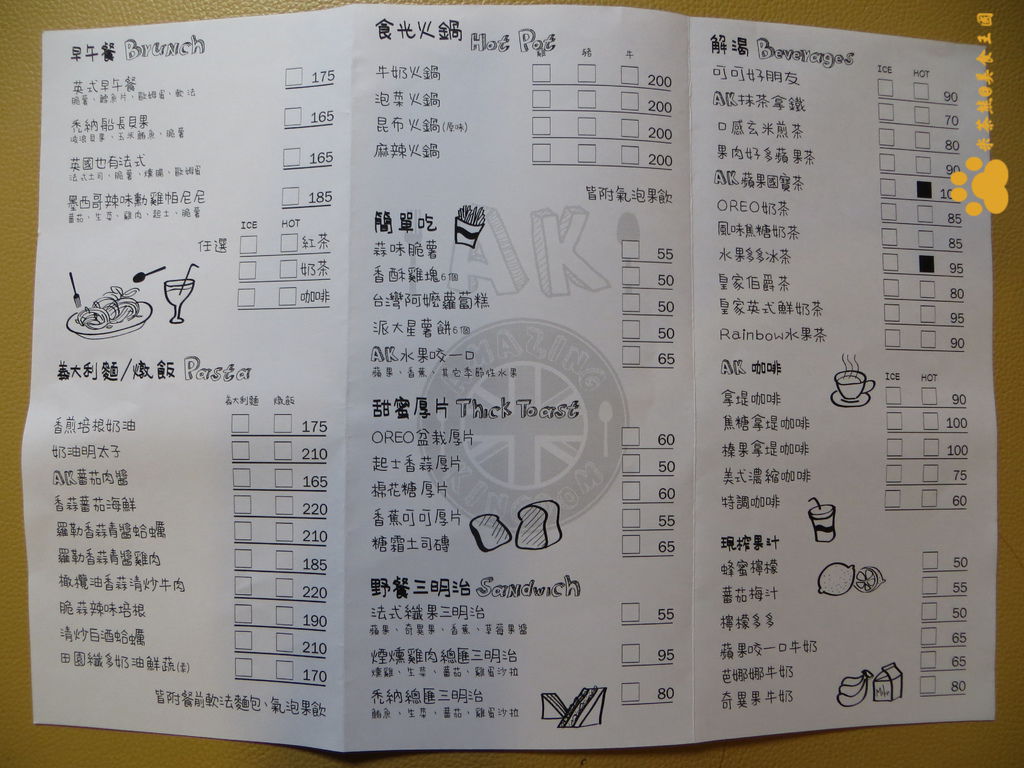 早午餐 Brunch
英式早午餐 175
脆薯、鱈魚片、歐姆蛋、軟法
禿納船長貝果 165
波浪貝果、玉米鮪魚、脆薯
英國也有法式 165
法式土司、脆薯、燻腸、歐姆蛋
墨西哥辣味勳雞帕尼尼 185
蕃茄、生菜、雞肉、起士、脆薯
ICE HOT
任選 紅茶
奶茶
咖啡
義大利麵/燉飯 Pasta
義大利麵 燉飯
香煎培根奶油 175
奶油明太子 210
AK蕃茄肉醬 165
香蒜蕃茄海鮮 220
羅勒香蒜青醬蛤蠣 210
羅勒香蒜青醬雞肉 185
橄欖油香蒜清炒牛肉 220
脆蒜辣味培根 190
清炒白酒蛤蠣 210
田園纖多奶油鮮蔬(素) 170
皆附餐前軟法麵包、氣泡果飲
食光火鍋 Hot Pot
豬 牛
牛奶火鍋 200
泡菜火鍋 200
昆布火鍋(原味) 200
麻辣火鍋 200
皆附氣泡果飲
簡單吃
蒜味脆薯 55
香酥雞塊6個 50
台灣阿嬤蘿蔔糕 50
派大星薯餅6個 50
AK水果咬一口 65
蘋果、香蕉、其它季節性水果
AK
AMAZING
KINGDOM
甜蜜厚片 Thick Toast
OREO盆栽厚片 60
起士香蒜厚片 50
棉花糖厚片 60
香蕉可可厚片 55
糖霜土司磚 65
野餐三明治 Sandwich
法式纖果三明治 55
蘋果、奇異果、香蕉、草莓果醬
煙燻雞肉總匯三明治 95
燻雞、生菜、蕃茄、雞蛋沙拉
禿納總匯三明治 80
鮪魚、生菜、蕃茄、雞蛋沙拉
解渴 Beverages
ICE HOT
可可好朋友 90
AK抹茶拿鐵 70
口感玄米煎茶 80
果肉好多蘋果茶 90
AK蘋果國寶茶
OREO奶茶 85
風味焦糖奶茶 85
水果多多冰茶 95
皇家伯爵茶 80
皇家英式鮮奶茶 95
Rainbow水果茶 90
AK 咖啡
ICE HOT
拿堤咖啡 90
焦糖拿堤咖啡 100
榛果拿堤咖啡 100
美式濃縮咖啡 75
特調咖啡 60
現榨果汁
蜂蜜檸檬 50
蕃茄梅汁 55
檸檬多多 50
蘋果咬一口牛奶 65
芭娜娜牛奶 65
奇異果牛奶 80
Milk
米茶熊の美食王國